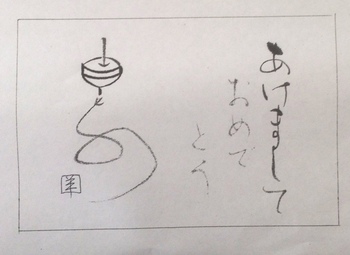 あけまして
おめで
とう
羊